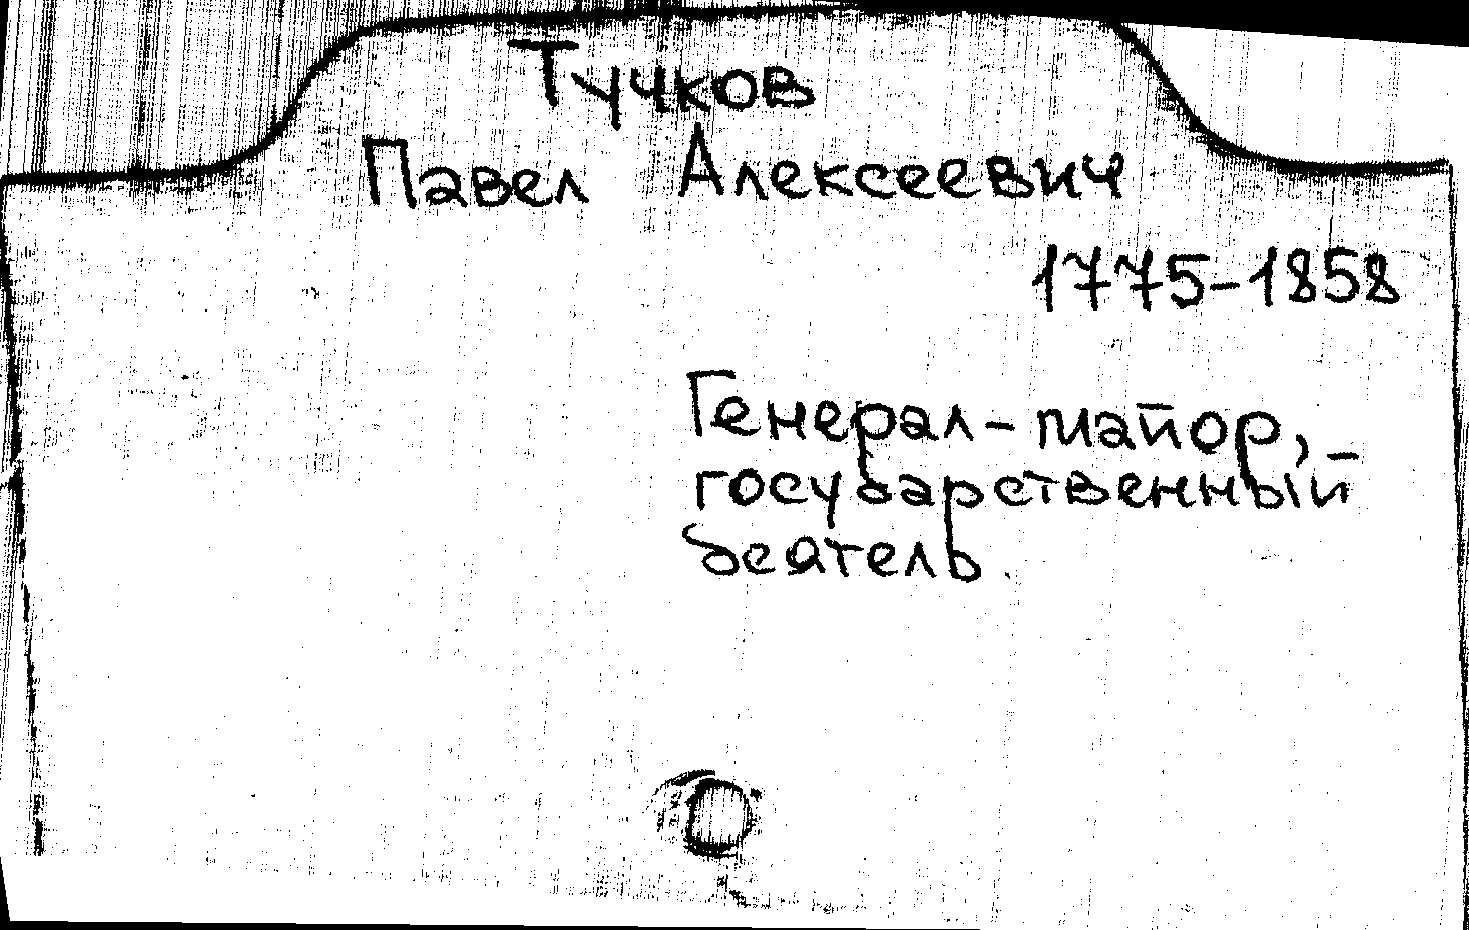 Тучков
Павел Алексеевич
1775-1858
Генерал-майор,
государственный
деятель.